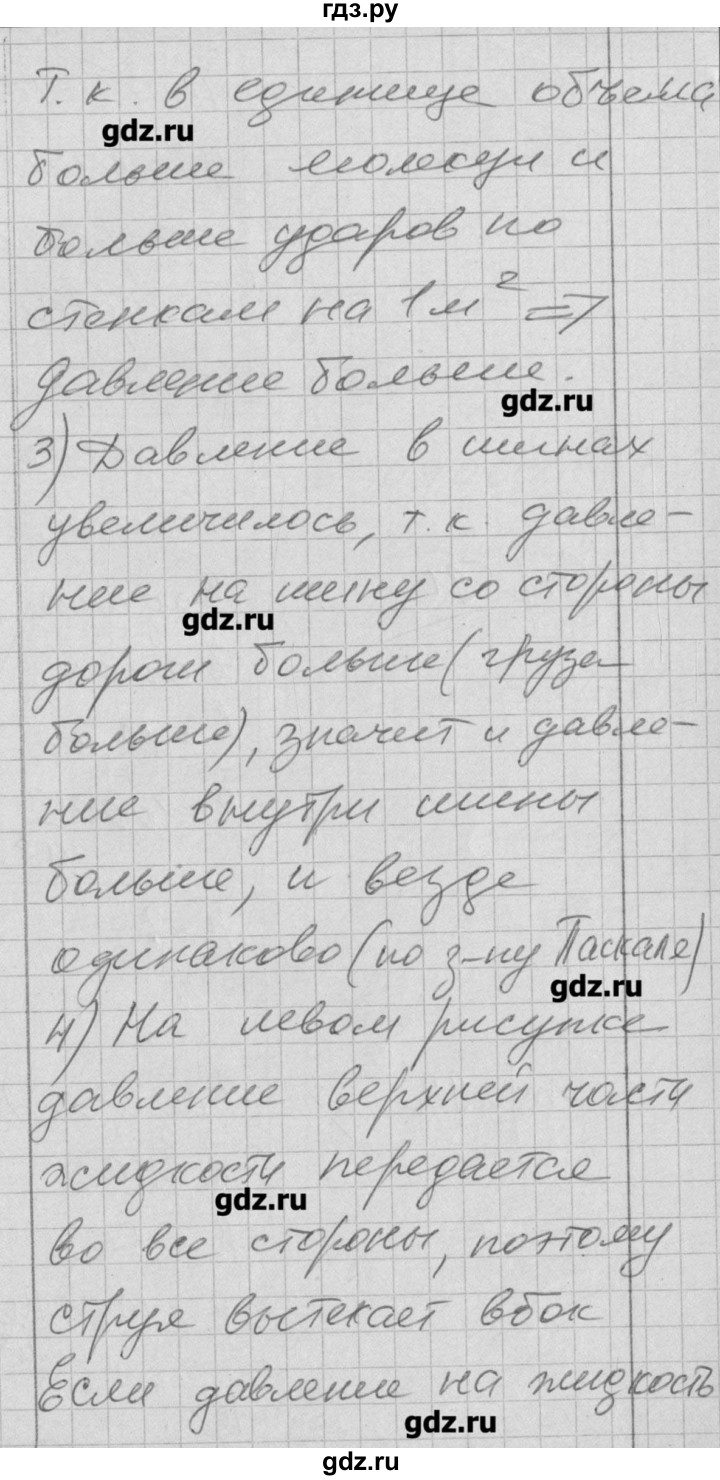 гдз.ру
Т.к. в единице объема
gdz.ru
больше молекул и
больше ударов по
стенкам на 1м² =>
давление больше.
gdz.ru
3) Давление в шинах
увеличилось, т.к. давле-
ние на шину со стороны
gdz.ru
дороги больше (груза
больше), значит и давле-
ние внутри шины
больше, и везде
одинаково (по з-ну Паскаля)
gdz.ru
4) На левом рисунке
давление верхней части
жидкости передается
gdz.ru
во все стороны, поэтому
струя вытекает вбок
Если давление на жидкость
gdz.ru
gdz.ru